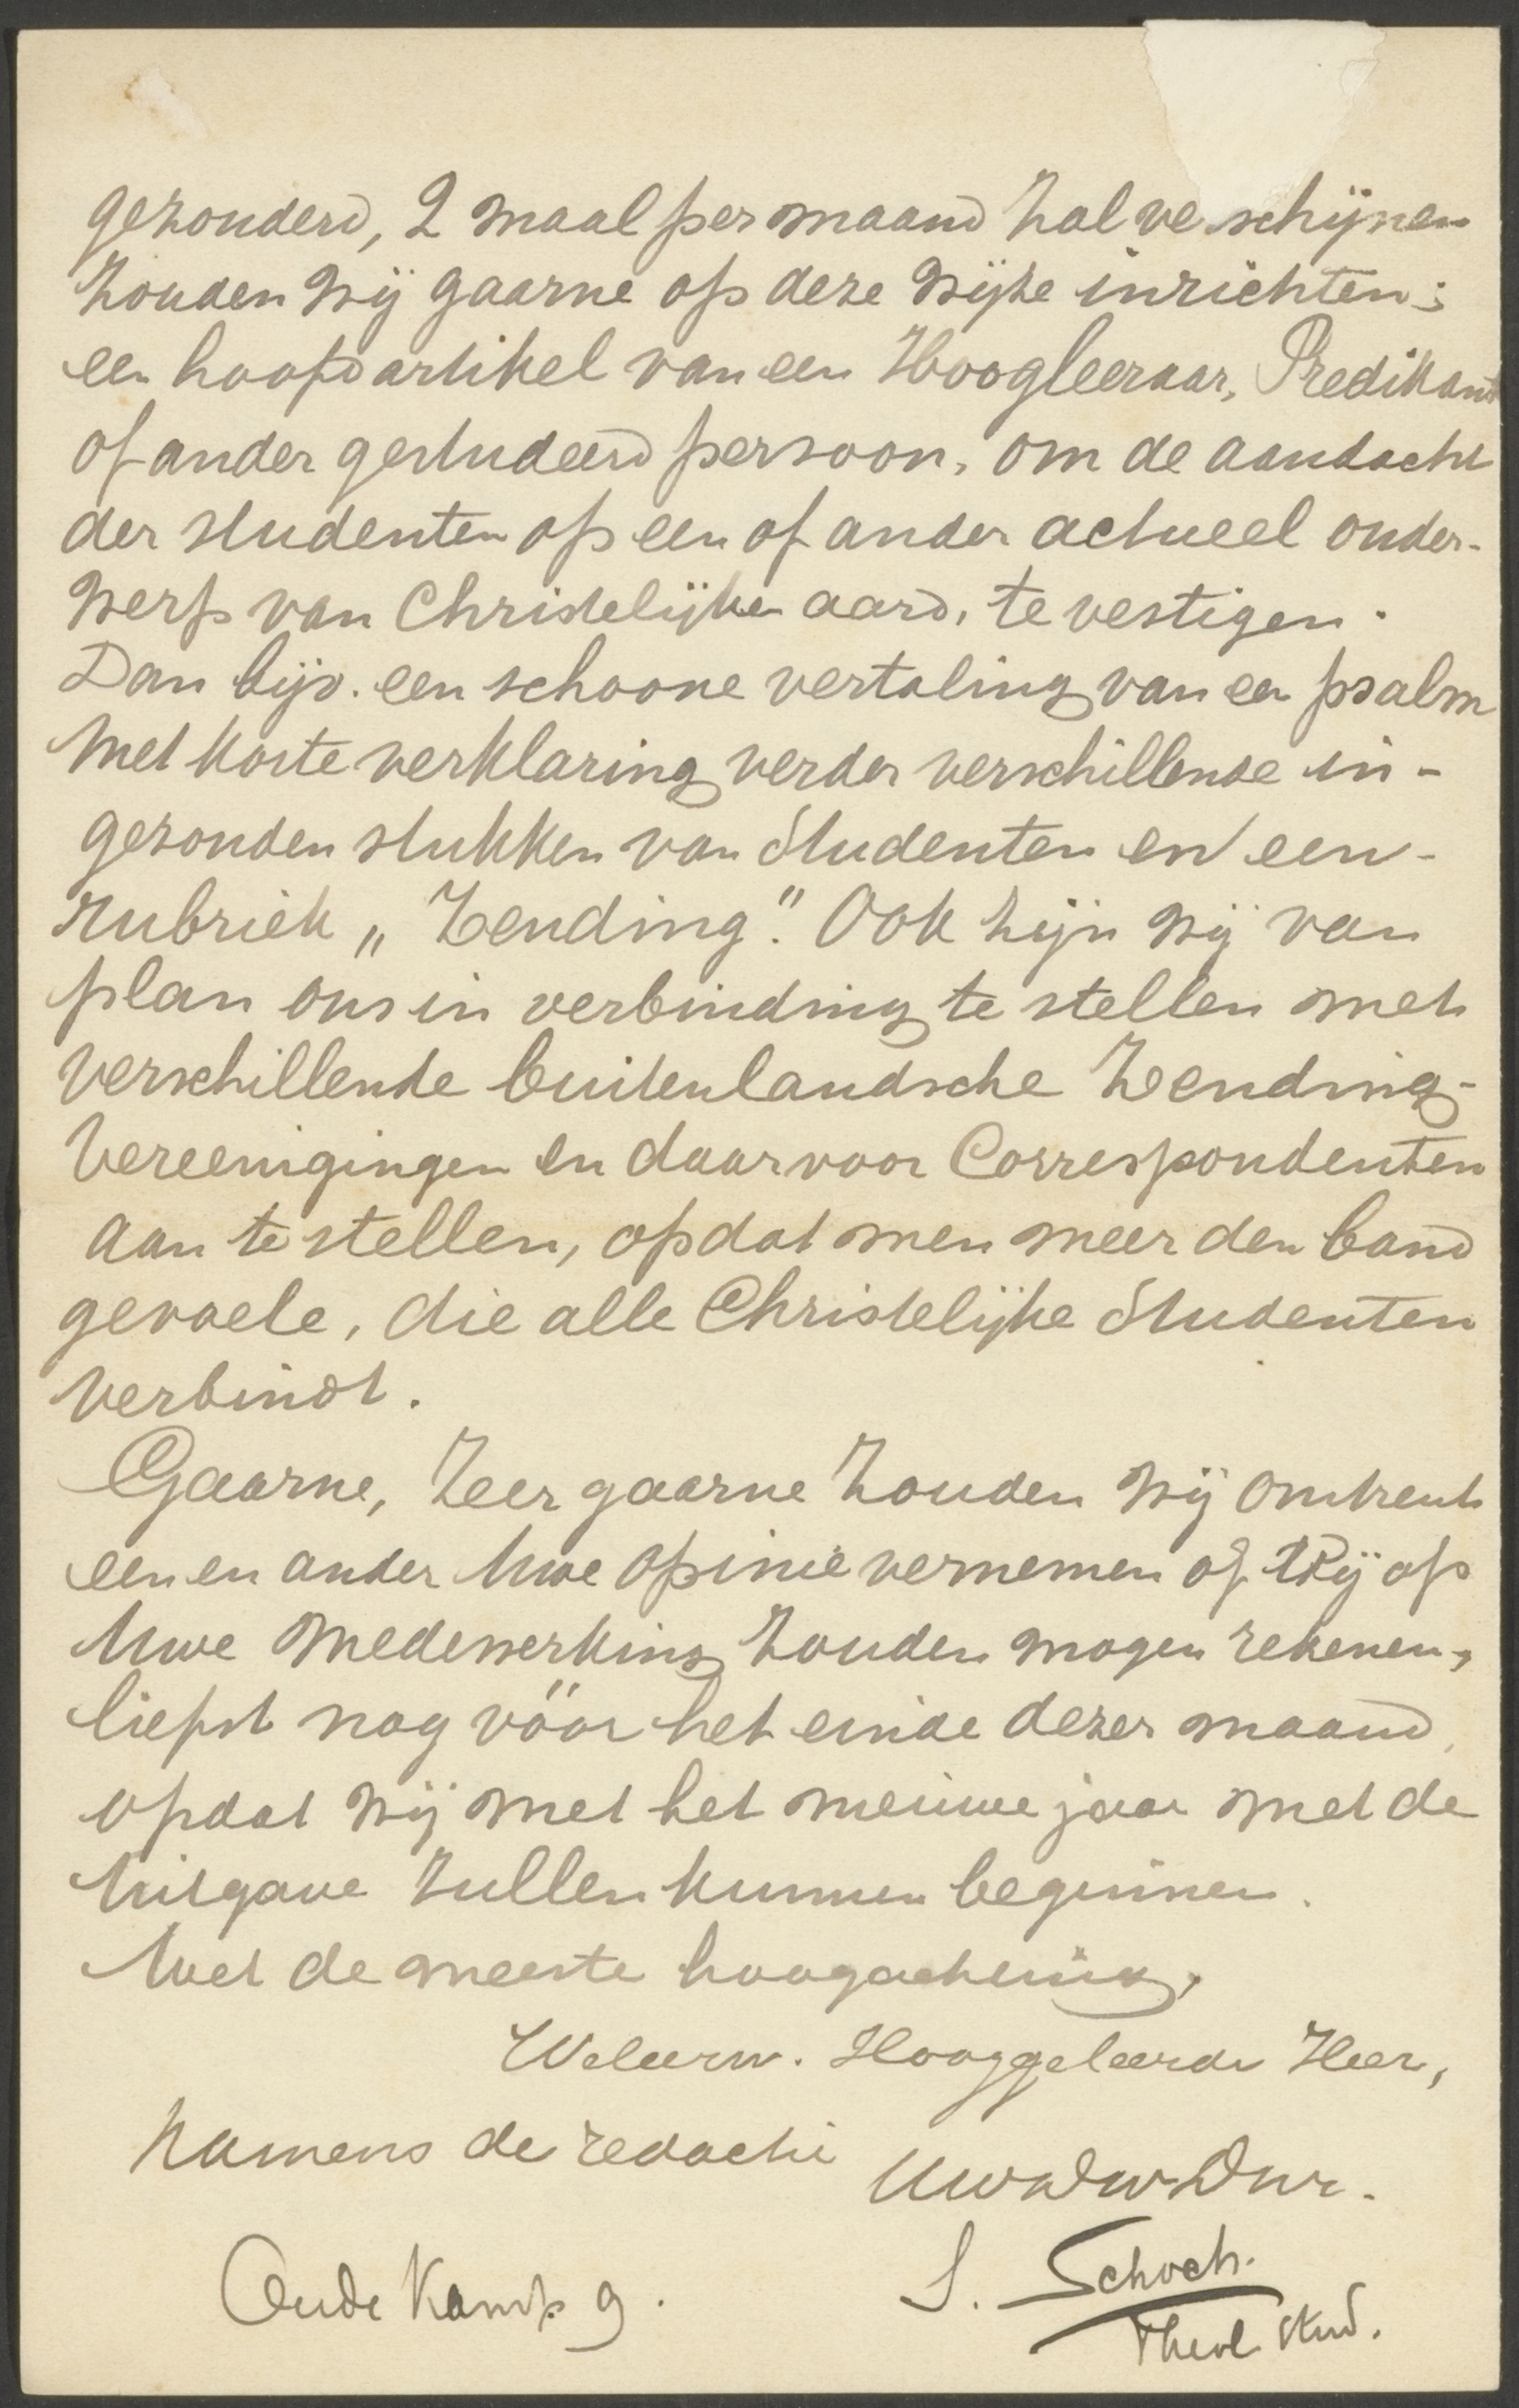 gezonderd, 2 maal per maand zal verschijnen
zouden wij gaarne op deze wijze inrichten:
een hoofdartikel van een Hoogleeraar, Predikant
of ander gestudeerd persoon, om de aandacht
der studenten op een of ander actueel onder-
werp van Christelijken aard, te vestigen.
Dan bijv. een schoone vertaling van een psalm
met korte verklaring verder verschillende in-
gezonden stukken van Studenten en een
rubriek „Zending". Ook zijn wij van
plan ons in verbinding te stellen met
verschillende buitenlandsche Zending-
Vereenigingen en daarvoor Correspondenten
aan te stellen, opdat men meer den band
gevoele, die alle Christelijke Studenten
verbindt.
Gaarne, Zeer gaarne zouden wij omtrent
een en ander Uwe opinie vernemen of Wij op
Uwe medewerking zouden mogen rekenen,
liefst nog vóór het einde dezer maand,
opdat wij met het nieuwe jaar met de
Uitgave zullen kunnen beginnen.
Met de meeste hoogachting,
Weleerw. Hooggeleerde Heer,
Namens de redactie
Uw Dw Dnr.
S. Schoch.
Oude Kamp 9.
Theol. Stud.